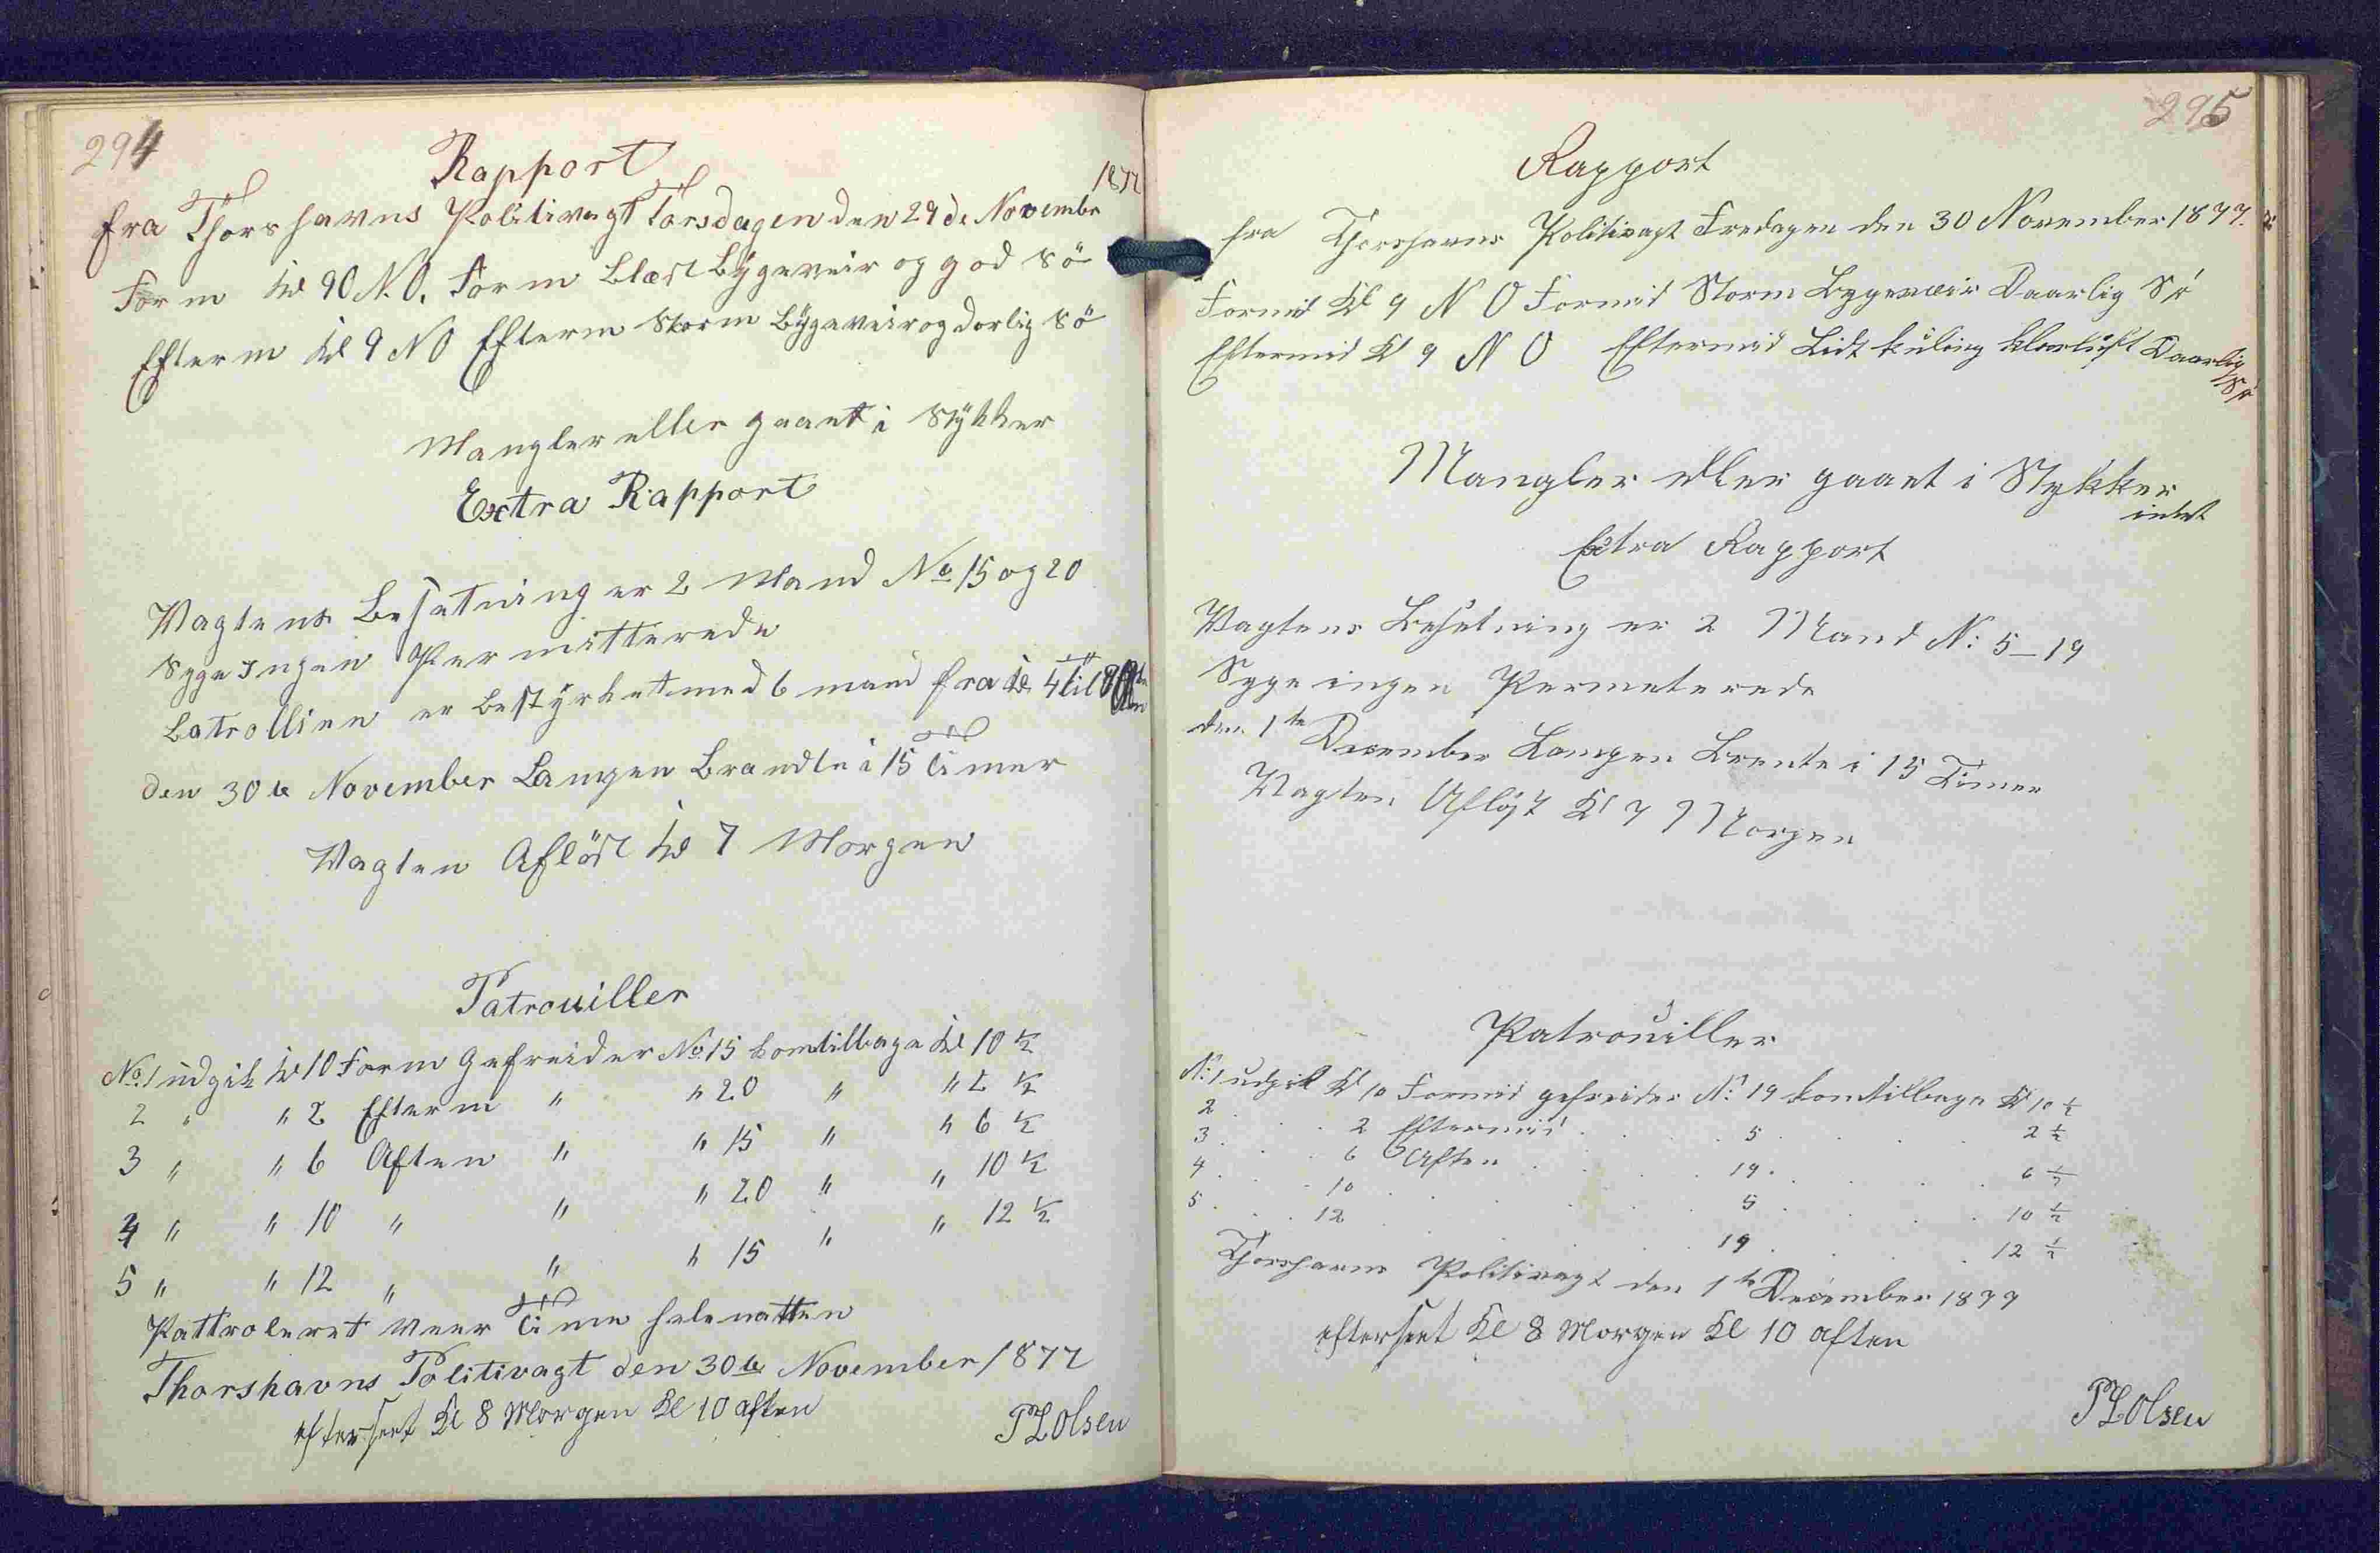 294
Rapport
1877
fra Thorshavns Politivagt Torsdagen den 29de Novembr
Form Kl 90 N.O. Form Blæst Bygeveir og god Sö
Efterm Kl 9 NO Efterm Storm Bygeveir og dorlig Sö
Mangler eller gaaet i Stykker
Extra Rapport
Vagtens Besatning er 2 Mand No 15 og 20
Syge Ingen Permitterede
Batrollien er Bestyrket med 6 mand fra Kl 4 til 8
den 30te November Lampen Brandte i 15 Timer
Vagten Aflöst Kl 7 Morgen
Patrouiller
No. 1 udgik Kl 10 Form Gefreider No 15 komtilbage Kl 10 ½
2 " " 2 Efterm " " 20 " " 2 ½
3 " " 6 Aften " " 15 " " 6 ½
4 " " 10 " " " 20 " " 10 ½
5 " " 12 " " " 15 " " 12 ½
Pattroleret veer Time hele natten
Thorshavns Politivagt den 30te November 1877
efterseet Kl 8 Morgen Kl 10 aften
PL Olsen
295
Rapport
fra Thorshavns Politivagt Fredagen den 30 November 1877.
Formid Kl 9 N O Formid Storm Bygeveir Daarlig Sö
Eftermid Kl 9 N O Eftermid Lidt kuling klarluft Daarlig Sö
Mangler eller gaaet i Stykker
intet
Extra Rapport
Vagtens Besetning er 2 Mand N: 5 – 19
Syge ingen Permeterede
den 1te December Lampen Brente i 15 Timer
Vagten Aflöst Kl 7 Morgen
Patrouiller
N: 1 udgik Kl 10 Formid gefreider N: 19 komtilbage Kl 10 ½
2 . . . 2 Eftermid . . . 5 . . . 2 ½
3 . . . 6 Aften . . . 19 . . . 6 ½
4 . . . 10 . . . 5 . . . 10 ½
5 . . . 12 . . . 19 . . . 12 ½
Thorshavns Politivagt den 1te December 1877
efterseet Kl 8 Morgen Kl 10 aften
PL Olsen